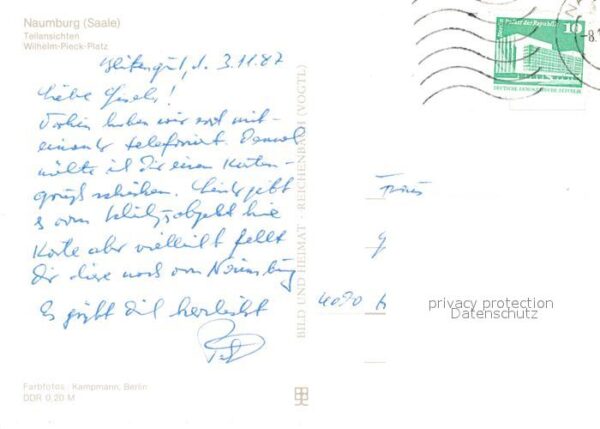 Naumburg (Saale)
Teilansichten
Wilhelm-Pieck-Platz
d. 3.11.87
Liebe Gisela!
Vorhin haben wir erst mit-
einander telefoniert. Dennoch
möchte ich Dir einen Karten-
gruß schicken. Leider gibt
es vom keine
Karte aber vielleicht gefällt
Dir diese noch von Naumburg
Es grüßt Dich herzlichst
BILD UND HEIMAT · REICHENBACH (VOGTL)
Palast der Republik
10
DEUTSCHE DEMOKRATISCHE REPUBLIK
-8.1
Frau
4090 H
privacy protection
Datenschutz
Farbfotos: Kampmann, Berlin
DDR 0,20 M